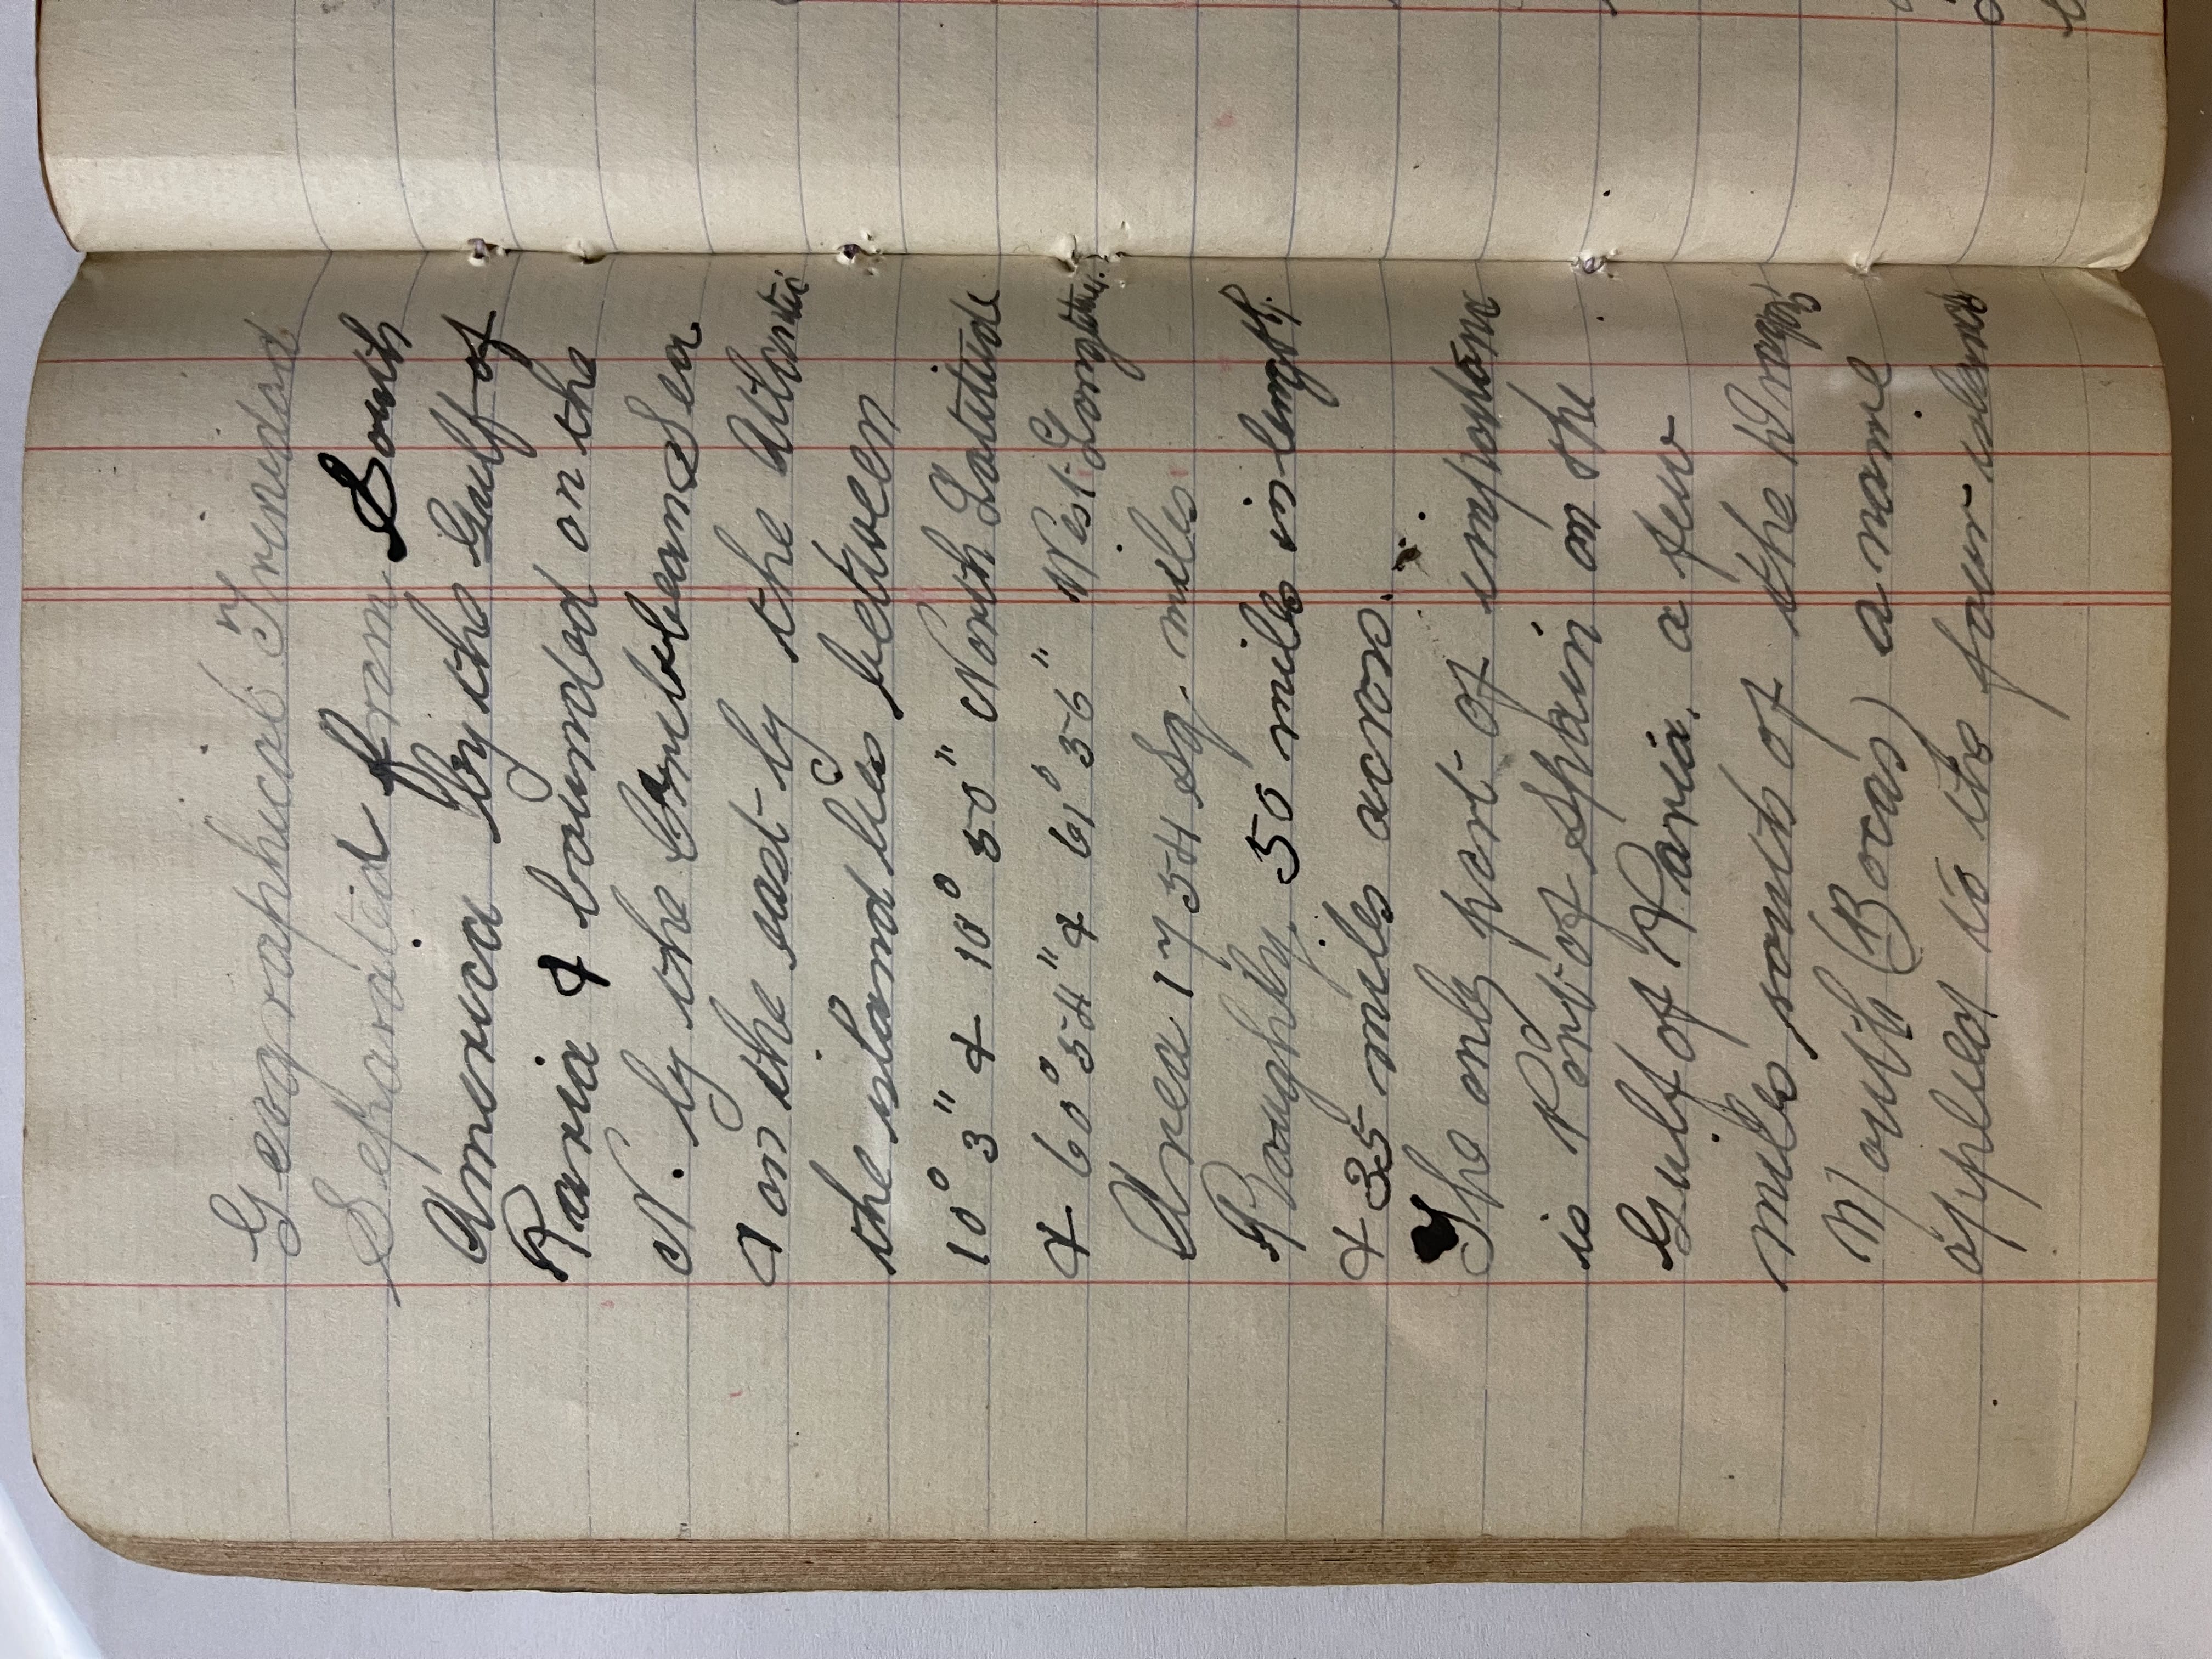 Geographical Trinidad
Separated from South
America by the Gulf of
Paria & bounded on the
N. by the Carribbean Sea
& on the east by the Atlantic
the island lies between
10° 3" & 10° 50" North Latitude
& 60° 54" & 61° 56" West Longitude.
Area 1754 Sq. miles
Roughly, 50 miles in length.
& 35 miles across.
The only port of importance
is Port of Spain on the
Gulf of Paria, a few
miles south of the Dragon's
Mouth (Bocas) a name
applied to the four islands